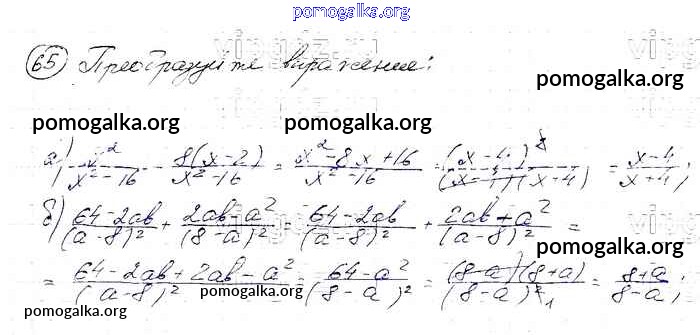 pomogalka.org
65 Преобразуйте выражение:
pomogalka.org
pomogalka.org pomogalka.org
а) x²/(x²-16) - 8(x-2)/(x²-16) = (x²-8x+16)/(x²-16) = (x-4)²/((x-4)(x+4)) = (x-4)/(x+4);
б) (64-2ab)/(a-8)² + (2ab-a²)/(8-a)² = (64-2ab)/(a-8)² + (2ab+a²)/(a-8)² =
pomogalka.org
= (64-2ab+2ab-a²)/(a-8)² = (64-a²)/(8-a)² = (8-a)(8+a)/(8-a)² = (8+a)/(8-a);
pomogalka.org pomogalka.org
pomogalka.org